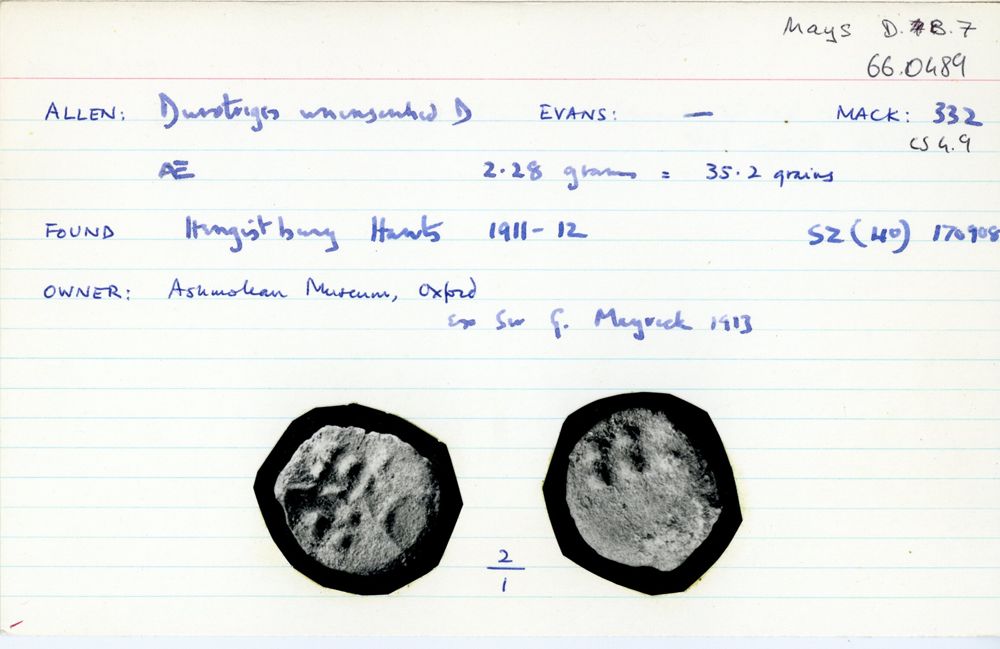 Mays D. B.7
66.0489
ALLEN: Durotriges uninscribed D EVANS: — MACK: 332
CS 4.9
AE 2.28 grams = 35.2 grains
FOUND Hengistbury Hants 1911-12 SZ (40) 170908
OWNER: Ashmolean Museum, Oxford
ex Sir G. Meyrick 1913
2
1